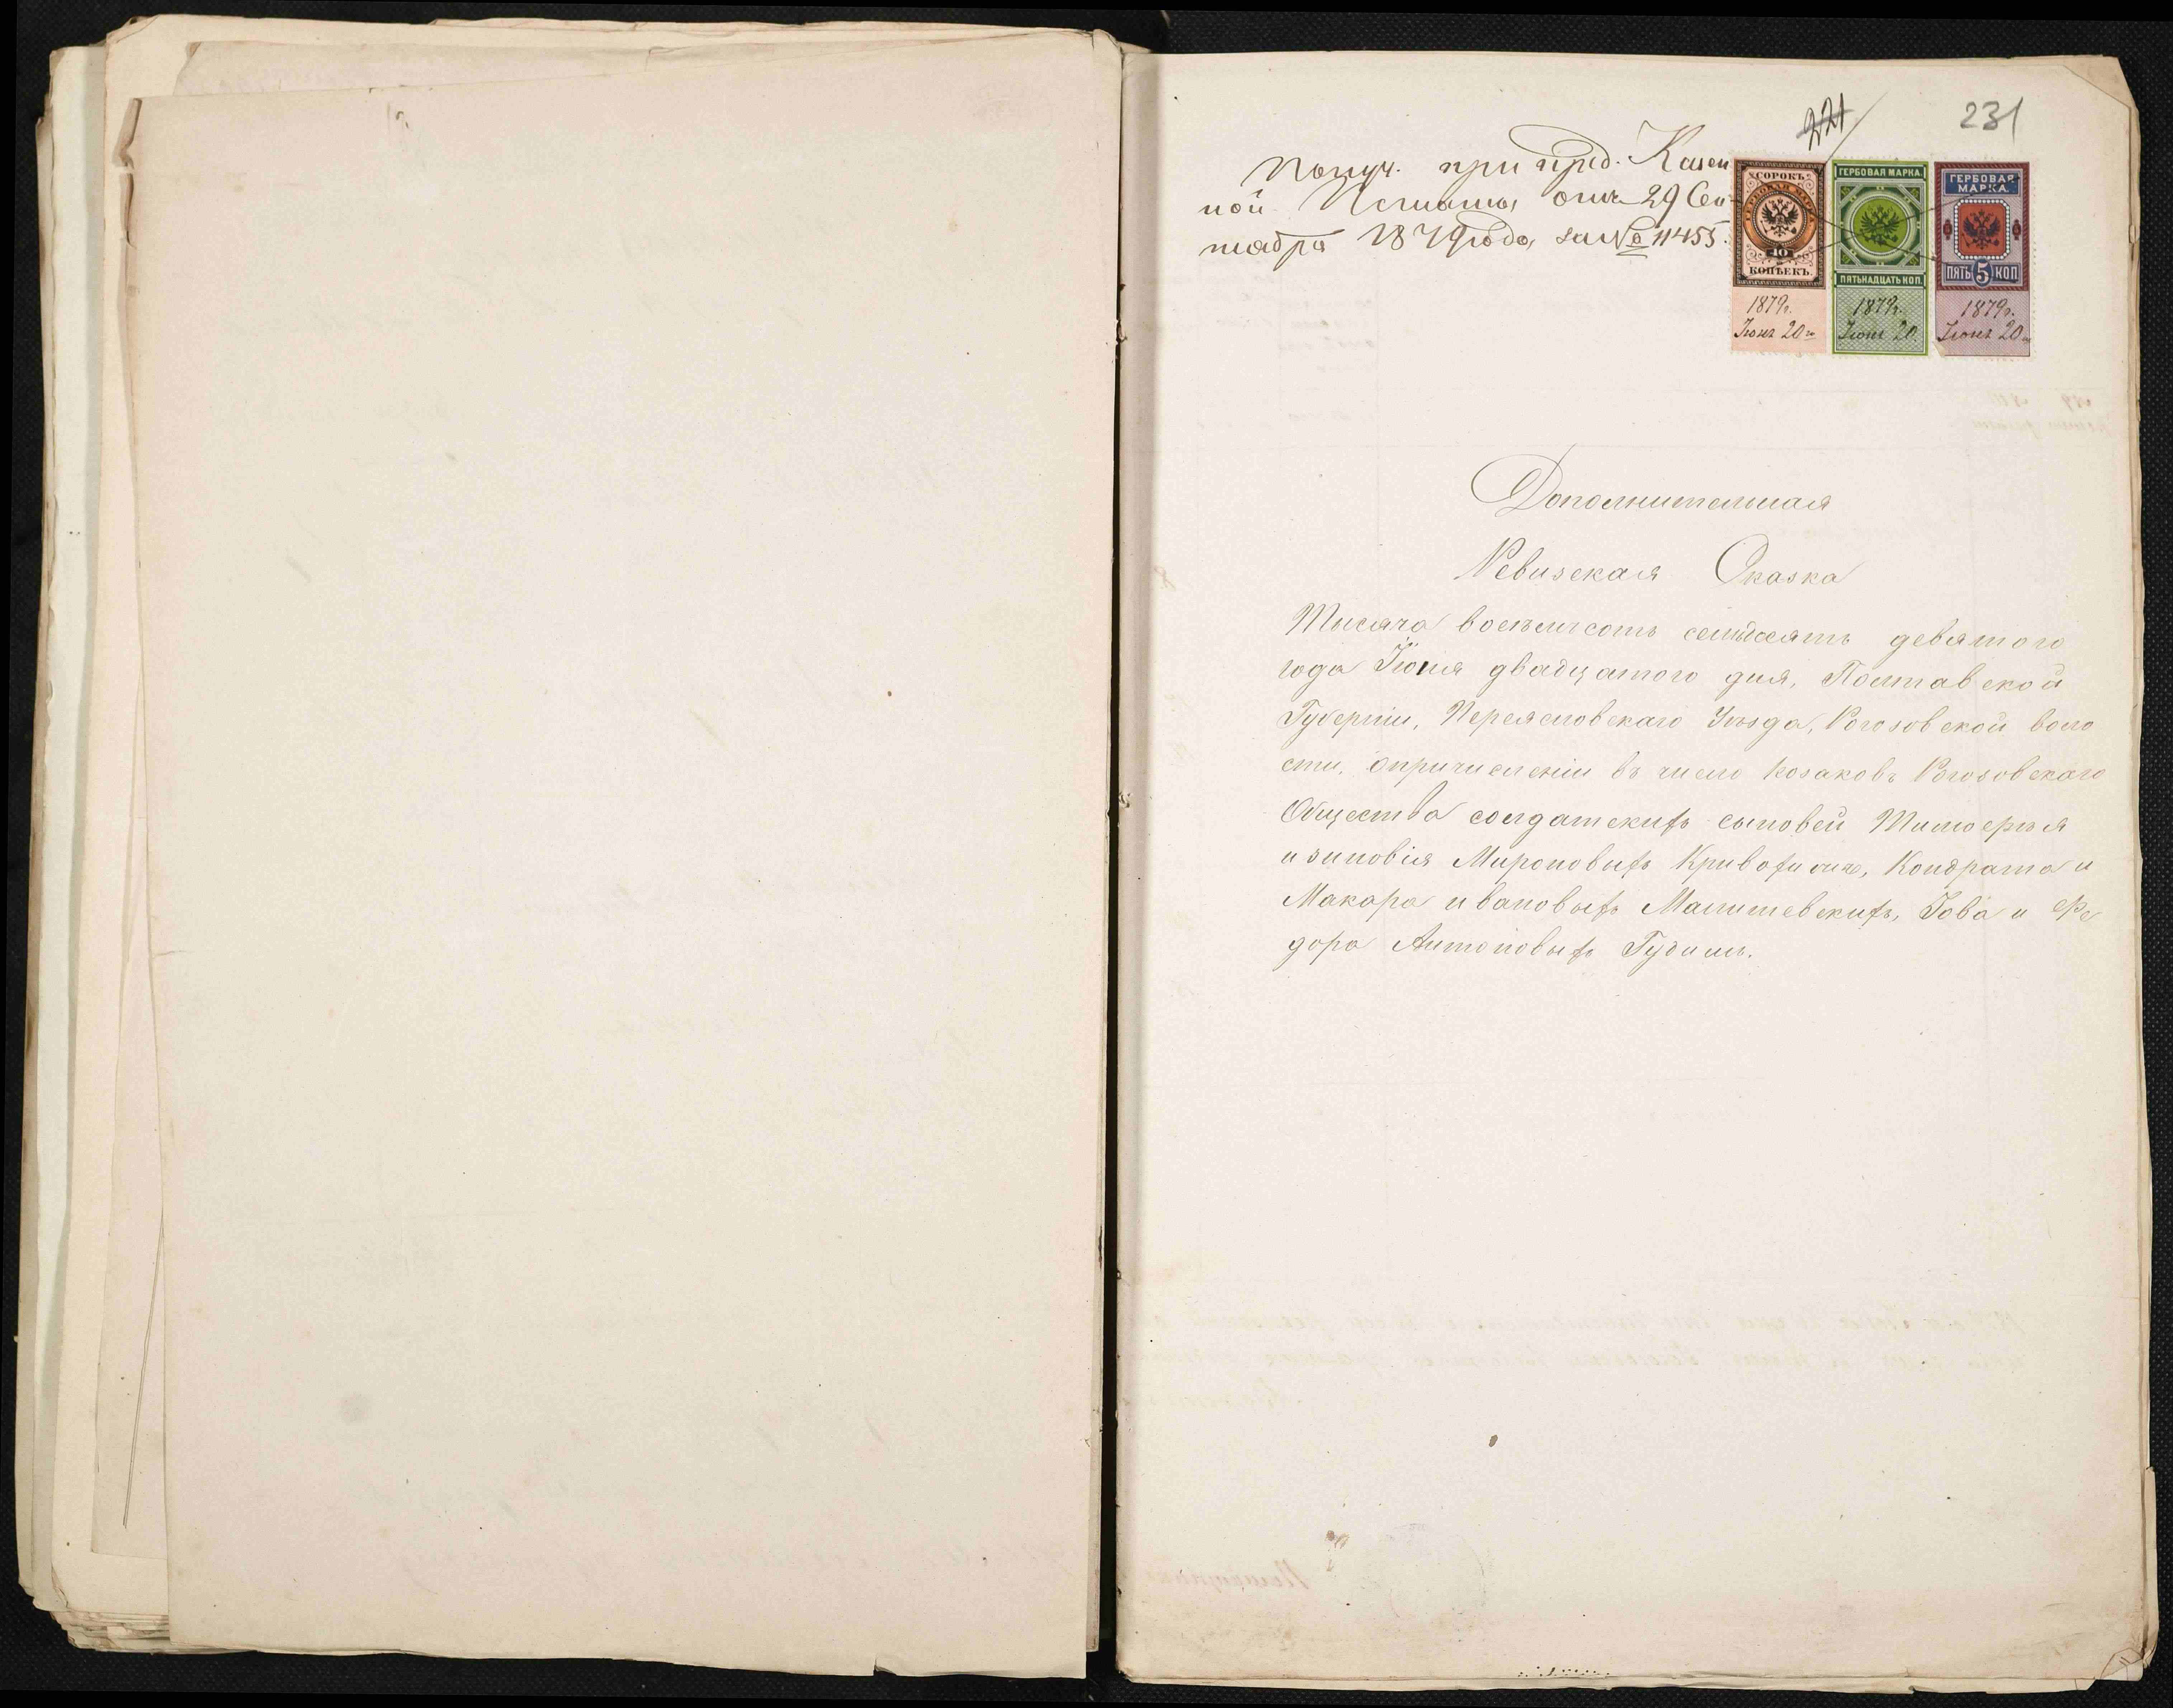 221
231
Получ. при пред. Казен
ной Палаты, отъ 29 Сен-
тября 1879 года, за № 11455.
СОРОКЪ
ГЕРБОВАЯ МАРКА
40
КОПѢЕКЪ.
1879г.
Іюня 20го
ГЕРБОВАЯ МАРКА.
ПЯТЬНАДЦАТЬ КОП.
1879г.
Іюня 20
ГЕРБОВАЯ
МАРКА.
ПЯТЬ 5 КОП
1879г.
Іюня 20го
Дополнительная
Ревизская Сказка
Тысяча восемьсотъ семьдесятъ девятого
года Іюня двадцатого дня, Полтавской
Губерніи, Переясловскаго Уѣзда, Рогозовской воло
сти, опричисленіи въ число Козаковъ Рогозовскаго
Общества солдатскихъ сыновей Тимофея
и зиновія Мироновыхъ Кривохижъ, Кондрата и
Макара ивановыхъ Малишевскихъ, Іова и Фе
дора Антоновыхъ Гудимъ.